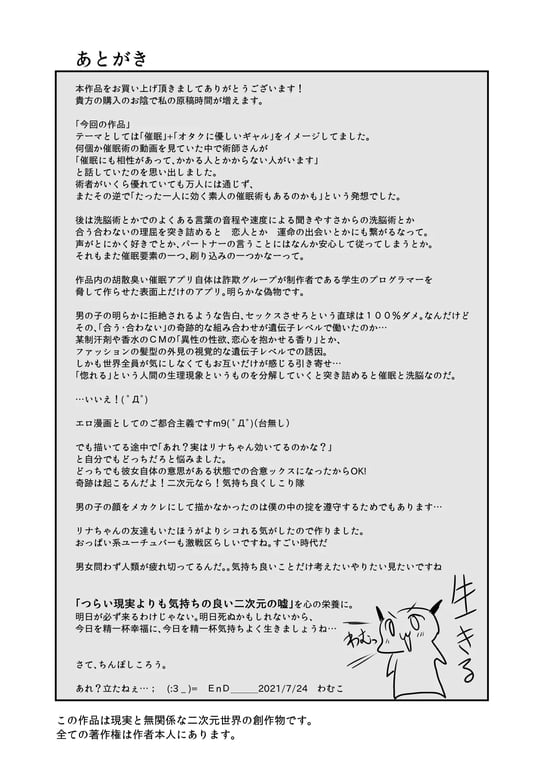 あとがき
本作品をお買い上げ頂きましてありがとうございます！
貴方の購入のお陰で私の原稿時間が増えます。
「今回の作品」
テーマとしては「催眠」+「オタクに優しいギャル」をイメージしてました。
何個か催眠術の動画を見ていた中で術師さんが
「催眠にも相性があって、かかる人とかからない人がいます」
と話していたのを思い出しました。
術者がいくら優れていても万人には通じず、
またその逆で「たった一人に効く素人の催眠術もあるのかも」という発想でした。
後は洗脳術とかでのよくある言葉の音程や速度による聞きやすさからの洗脳術とか
合う合わないの理屈を突き詰めると　恋人とか　運命の出会いとかにも繋がるなって。
声がとにかく好きでとか、パートナーの言うことにはなんか安心して従ってしまうとか。
それもまた催眠要素の一つ、刷り込みの一つかなーって。
作品内の胡散臭い催眠アプリ自体は詐欺グループが制作者である学生のプログラマーを
脅して作らせた表面上だけのアプリ。明らかな偽物です。
男の子の明らかに拒絶されるような告白、セックスさせろという直球は１００％ダメ。なんだけど
その、「合う・合わない」の奇跡的な組み合わせが遺伝子レベルで働いたのか…
某制汗剤や香水のＣＭの「異性の性欲、恋心を抱かせる香り」とか、
ファッションの髪型の外見の視覚的な遺伝子レベルでの誘因。
しかも世界全員が気にしなくてもお互いだけが感じる引き寄せ…
「惚れる」という人間の生理現象というものを分解していくと突き詰めると催眠と洗脳なのだ。
…いいえ！(ﾟДﾟ)
エロ漫画としてのご都合主義ですm9(ﾟДﾟ)（台無し）
でも描いてる途中で「あれ？実はリナちゃん効いてるのかな？」
と自分でもどっちだろと悩みました。
どっちでも彼女自体の意思がある状態での合意ックスになったからOK!
奇跡は起こるんだよ！二次元なら！気持ち良くしこり隊
男の子の顔をメカクレにして描かなかったのは僕の中の掟を遵守するためでもあります…
リナちゃんの友達もいたほうがよりシコれる気がしたので作りました。
おっぱい系ユーチューバーも激戦区らしいですね。すごい時代だ
男女問わず人類が疲れ切ってるんだ。。気持ち良いことだけ考えたいやりたい見たいですね
「つらい現実よりも気持ちの良い二次元の嘘」を心の栄養に。
明日が必ず来るわけじゃない。明日死ぬかもしれないから、
今日を精一杯幸福に、今日を精一杯気持ちよく生きましょうね…
さて、ちんぽしころう。
あれ？立たねぇ…；　(:3＿)=　EnD＿＿＿2021/7/24　わむこ
生きる
わむっ
この作品は現実と無関係な二次元世界の創作物です。
全ての著作権は作者本人にあります。